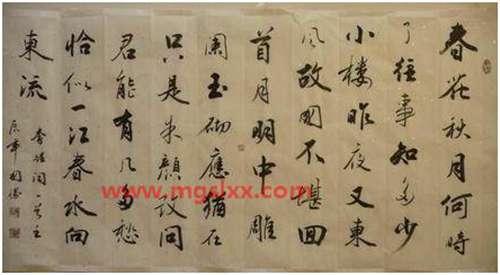 春花秋月何時
了往事知多少
小樓昨夜又東
风故國不堪回
首月明中雕
闌玉砌應猶在
只是朱顏改問
君能有几多愁
恰似一江春水向
東流
李煜詞一首
www.mgslxx.com